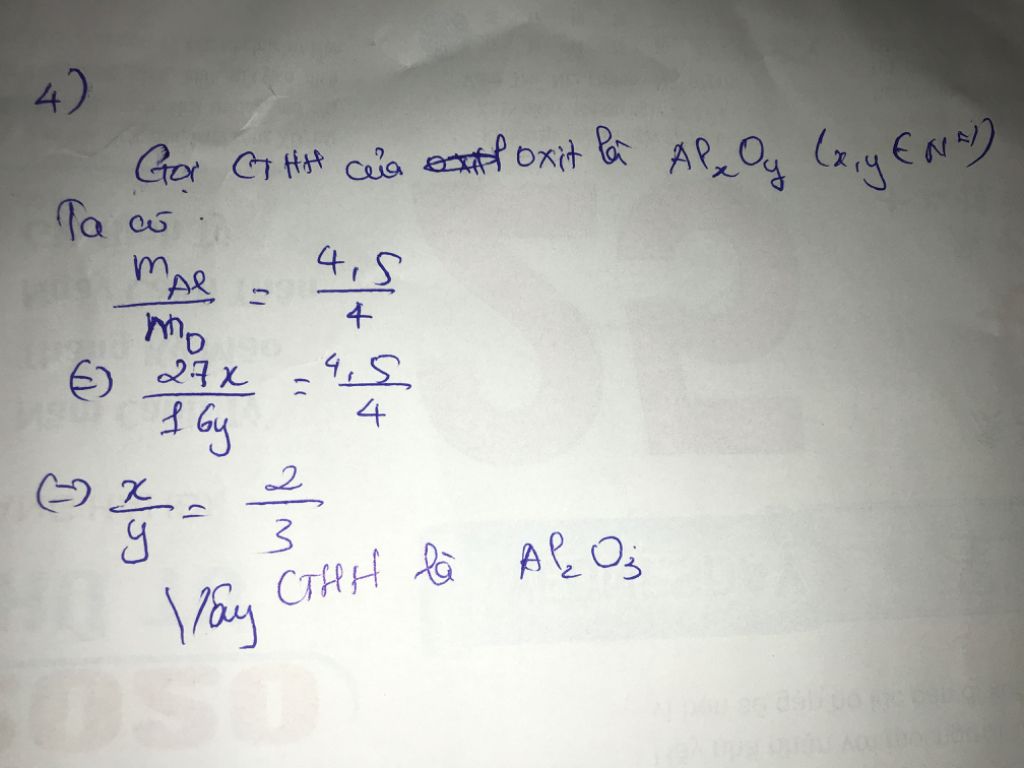 4)
Gọi CTHH của oxit là AlxOy (x,y ∈ N*)
Ta có :
mAl / mO = 4,5 / 4
(=) 27x / 16y = 4,5 / 4
(=) x / y = 2 / 3
Vậy CTHH là Al2O3